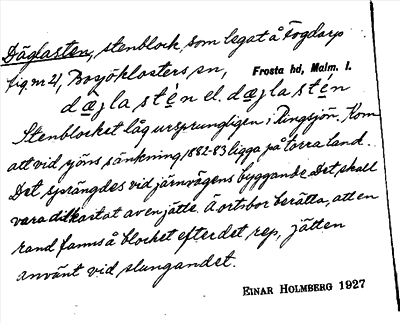 Däglasten, stenblock, som legat å Fogdarp
fig nr 21, Bosjöklosters sn, Frosta hd, Malm. l.
dæjlastén el. dæjlastén
Stenblocket låg ursprungligen i Ringsjön. Kom
att vid sjöns sänkning 1882-83 ligga på torra land.
Det sprängdes vid järnvägens byggande. Det skall
vara ditkastat av en jätte. Å ortsbor berätta, att en
rand fanns å blocket efter det rep, jätten
använt vid slungandet.
EINAR HOLMBERG 1927